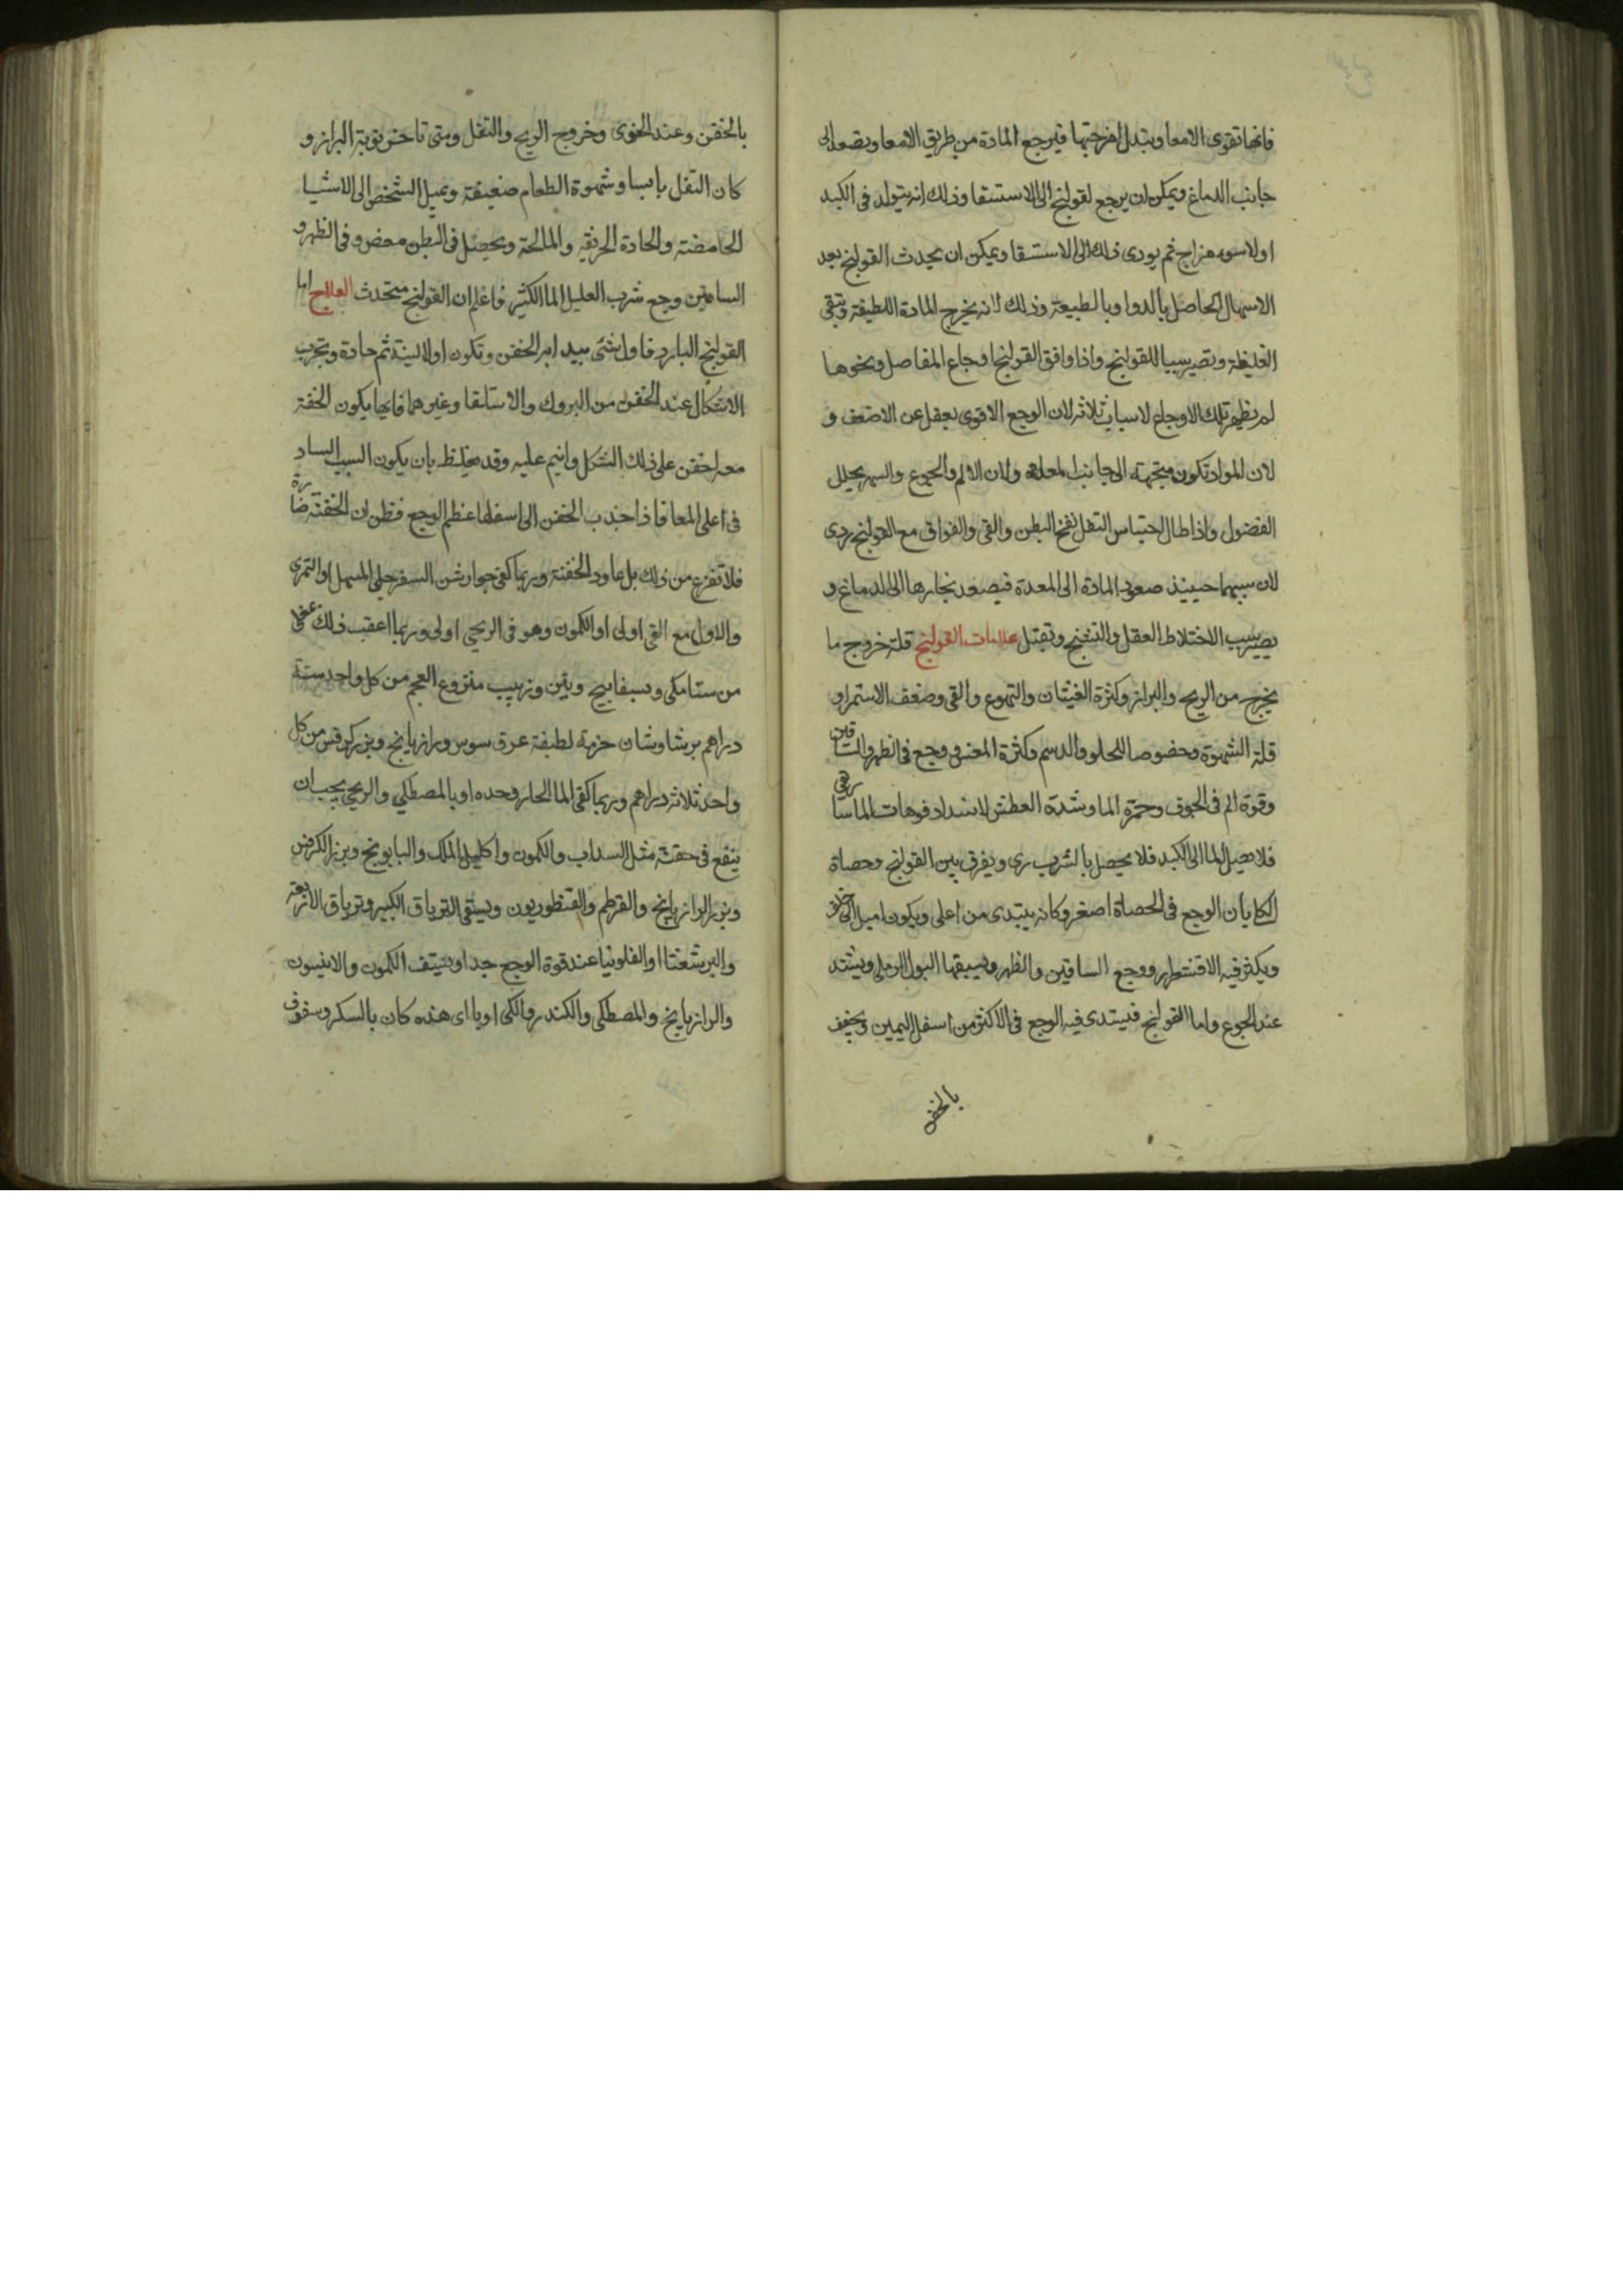 فانها تقوى الامعا ويتبدل امزجتها فيرجع المادة من طريق الامعا ويصعد الى
جانب الدماغ ويمكن ان يرجع لقولنج الى الاستسقا وذلك انه يتولد فى الكبد
اولا سوء مزاج ثم يودى ذلك الى الاستسقا ويمكن ان يحدث القولنج بعد
الاسهال الحاصل بالدوا وبالطبيعة وذلك لانه يخرج المادة اللطيفة وتبقى
الغليظة وتصير سببا للقولنج واذا وافق القولنج اوجاع المفاصل ونحوها
لم يظهر تلك الاوجاع لاسباب ثلاثة لان الوجع الاقوى يغفل عن الاضعف و
لان المواد تكون متجهة الى جانب المعدة ولان الالم والجوع والسهر يحلل
الفضول واذا طال احتباس الثفل نفخ البطن والقى والفواق مع القولنج ردى
لان سببهما حينيذ صعود المادة الى المعدة فيصعد بخارها الى الدماغ و
يصير سبب الاختلاط العقل والتشنج وتقتل علامات القولنج قلة خروج ما
يخرج من الريح والبراز وكثرة الغثيان والتهوع والقى وضعف الاستمراو
قلة الشهوة وخصوصا للحلو والدسم وكثرة المغس ووجع فى الظهر والساقين
وقوة الم فى الجوف وحمرة الما وشدة العطش لانسداد فوهات الماسارقى
فلا يصل الما الى الكبد فلا يحصل بالشرب رى ويفرق بين القولنج وحصاة
الكلا بان الوجع فى الحصاة اصغر وكانه يبتدى من اعلى ويكون اميل الى خلف
ويكثر فيه الاقشعرار ووجع الساقين والظهر ويسبقها البول الرملى ويشتد
عند الجوع واما القولنج فيبتدى فيه الوجع فى الاكثر من اسفل اليمين ويخفف
بالحقن
بالحقن وعند الخوى وخروج الريح والثفل ومتى تاخر نوبة البراز و
كان الثفل يابسا وشهوة الطعام ضعيفة ويميل الشخص الى الاشيا
الحامضة والحادة الحريقة والمالحة ويحصل فى البطن مغص وفى الظهر و
الساقين وجع شرب العليل الما الكثير فاعلم ان القولنج ستحدث العلاج اما
القولنج البارد فاول شئ يبدا امر الحقن وتكون اولا لينة ثم حادة وتجرب
الاشكال عند الحقن من البروك والاستلقا وغيرهما فايها يكون الحقنة
معه احقن على ذلك الشكل وانيم عليه وقد يغلط بان يكون السبب الساد
فى اعلى المعا فاذا جذب الحقن الى اسفل اعظم الوجع فظن ان الحقنة ضارة
فلا تفزع من ذلك بل عاود الحقنة وربما كفى جوارشن السفرجلى المسهل او التمرى
والاول مع القى اولى او الكمون وهو فى الريحى اولى وربما اعقب ذلك بمغلى
من سنامكى وبسفايج وتين وزبيب منزوع العجم من كل واحد ستة
دراهم برشاوشان حزمة لطيفة عرق سوس ورازيانج وبزر كرفس من كل
واحد ثلاثة دراهم وربما كفى الما الحار وحده او بالمصطكى والريحى يجب ان
ينفع فى حقنته مثل السداب والكمون واكليل الملك والبابونج وبزر الكرفس
وبزر الرازيانج والقرطم والقنطوريون ويسقى الترياق الكبير وترياق الاربعة
والبرشعثا او الفلونيا عند قوة الوجع جدا ويستف الكمون والانيسون
والرازيانج والمصطكى والكندر والكى اوباى هذه كان بالسكر وسفوف